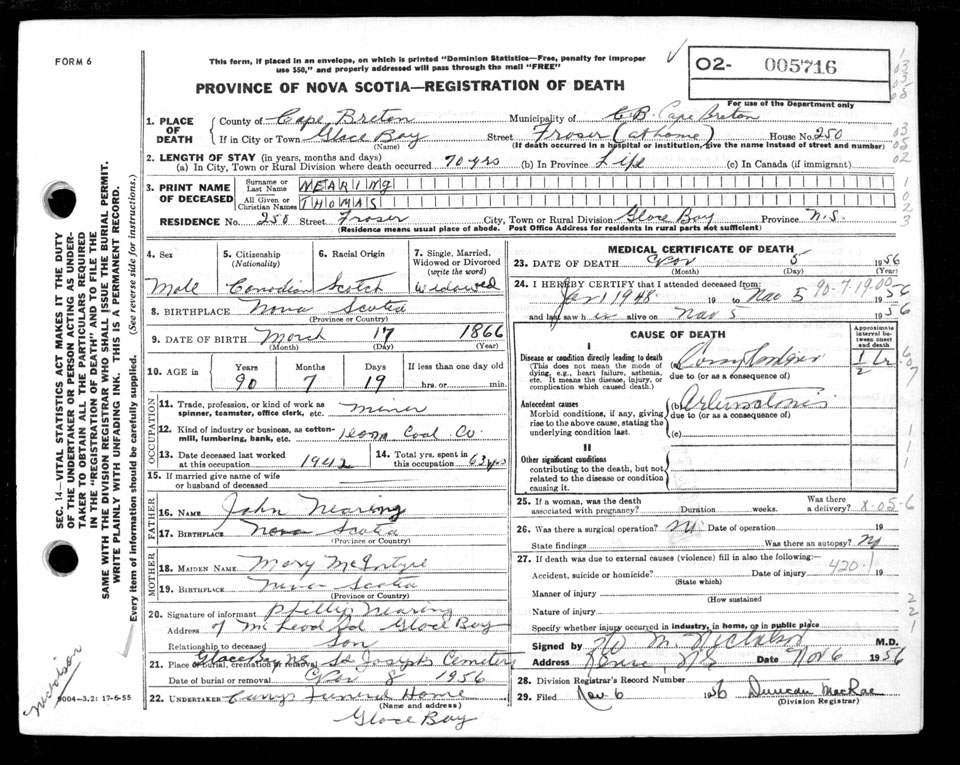 FORM 6
This form, if placed in an envelope, on which is printed "Dominion Statistics—Free, penalty for improper
use $50," and properly addressed will pass through the mail "FREE"
O2- 005716
For use of the Department only
PROVINCE OF NOVA SCOTIA—REGISTRATION OF DEATH
1. PLACE OF DEATH
County of Cape Breton Municipality of C.B. Cape Breton
If in City or Town Glace Bay Street Fraser (at home) House No. 250
(Name) (If death occurred in a hospital or institution, give the name instead of street and number)
2. LENGTH OF STAY (in years, months and days)
(a) In City, Town or Rural Division where death occurred 70 yrs (b) In Province Life (c) In Canada (if immigrant)
3. PRINT NAME OF DECEASED
Surname or Last Name NEARING
All Given or Christian Names THOMAS
RESIDENCE No. 250 Street Fraser City, Town or Rural Division Glace Bay Province N.S.
(Residence means usual place of abode. Post Office Address for residents in rural parts not sufficient)
4. Sex
Male
5. Citizenship
(Nationality)
Canadian
6. Racial Origin
Scotch
7. Single, Married,
Widowed or Divorced
(write the word)
Widowed
8. BIRTHPLACE Nova Scotia
(Province or Country)
9. DATE OF BIRTH March 17 1866
(Month) (Day) (Year)
10. AGE in
Years Months Days If less than one day old
90 7 19 hrs. or min.
OCCUPATION
11. Trade, profession, or kind of work as
spinner, teamster, office clerk, etc. miner
12. Kind of industry or business, as cotton-
mill, lumbering, bank, etc. Coal Co.
13. Date deceased last worked
at this occupation 1942
14. Total yrs. spent in
this occupation 63 yrs
15. If married give name of wife
or husband of deceased
FATHER
16. NAME John Nearing
17. BIRTHPLACE Nova Scotia
(Province or Country)
MOTHER
18. MAIDEN NAME Mary McIntyre
19. BIRTHPLACE Nova Scotia
(Province or Country)
20. Signature of informant Phillip Nearing
Address 7 McLeod Glace Bay
Relationship to deceased Son
21. Place of burial, cremation or removal St Joseph's Cemetery
Date of burial or removal Nov 8 1956
22. UNDERTAKER Curry's Funeral Home
(Name and address)
Glace Bay
MEDICAL CERTIFICATE OF DEATH
23. DATE OF DEATH Nov 5 1956
(Month) (Day) (Year)
24. I HEREBY CERTIFY that I attended deceased from:
Jan 1 1948 19 to Nov 5 1956
90-7-19.00
and last saw h is alive on Nov 5 1956
CAUSE OF DEATH
Approximate
interval be-
tween onset
and death
I
Disease or condition directly leading to death
(This does not mean the mode of
dying, e.g., heart failure, asthenia,
etc. It means the disease, injury, or
complication which caused death.)
(a)
due to (or as a consequence of)
1/2 hr
Antecedent causes
Morbid conditions, if any, giving
rise to the above cause, stating the
underlying condition last.
(b)
due to (or as a consequence of)
(c)
II
Other significant conditions
contributing to the death, but not
related to the disease or condition
causing it.
25. If a woman, was the death
associated with pregnancy? Duration weeks. Was there
a delivery? X-05-6
26. Was there a surgical operation? No Date of operation 19
State findings Was there an autopsy? No
27. If death was due to external causes (violence) fill in also the following:—
Accident, suicide or homicide? Date of injury 19
(State which)
420.1
Manner of injury
(How sustained
Nature of injury
Specify whether injury occurred in industry, in home, or in public place
Signed by M. Nicholson M.D.
Address N.S. Date Nov 6 1956
28. Division Registrar's Record Number
29. Filed Nov 6 1956 Duncan MacRae
(Division Registrar)
SEC. 14—VITAL STATISTICS ACT MAKES IT THE DUTY
OF THE UNDERTAKER OR PERSON ACTING AS UNDER-
TAKER TO OBTAIN ALL THE PARTICULARS REQUIRED
IN THE "REGISTRATION OF DEATH" AND TO FILE THE
SAME WITH THE DIVISION REGISTRAR WHO SHALL ISSUE THE BURIAL PERMIT.
WRITE PLAINLY WITH UNFADING INK. THIS IS A PERMANENT RECORD.
Every item of information should be carefully supplied. (See reverse side for instructions.)
Nicholson
9004-3.2: 17-6-55